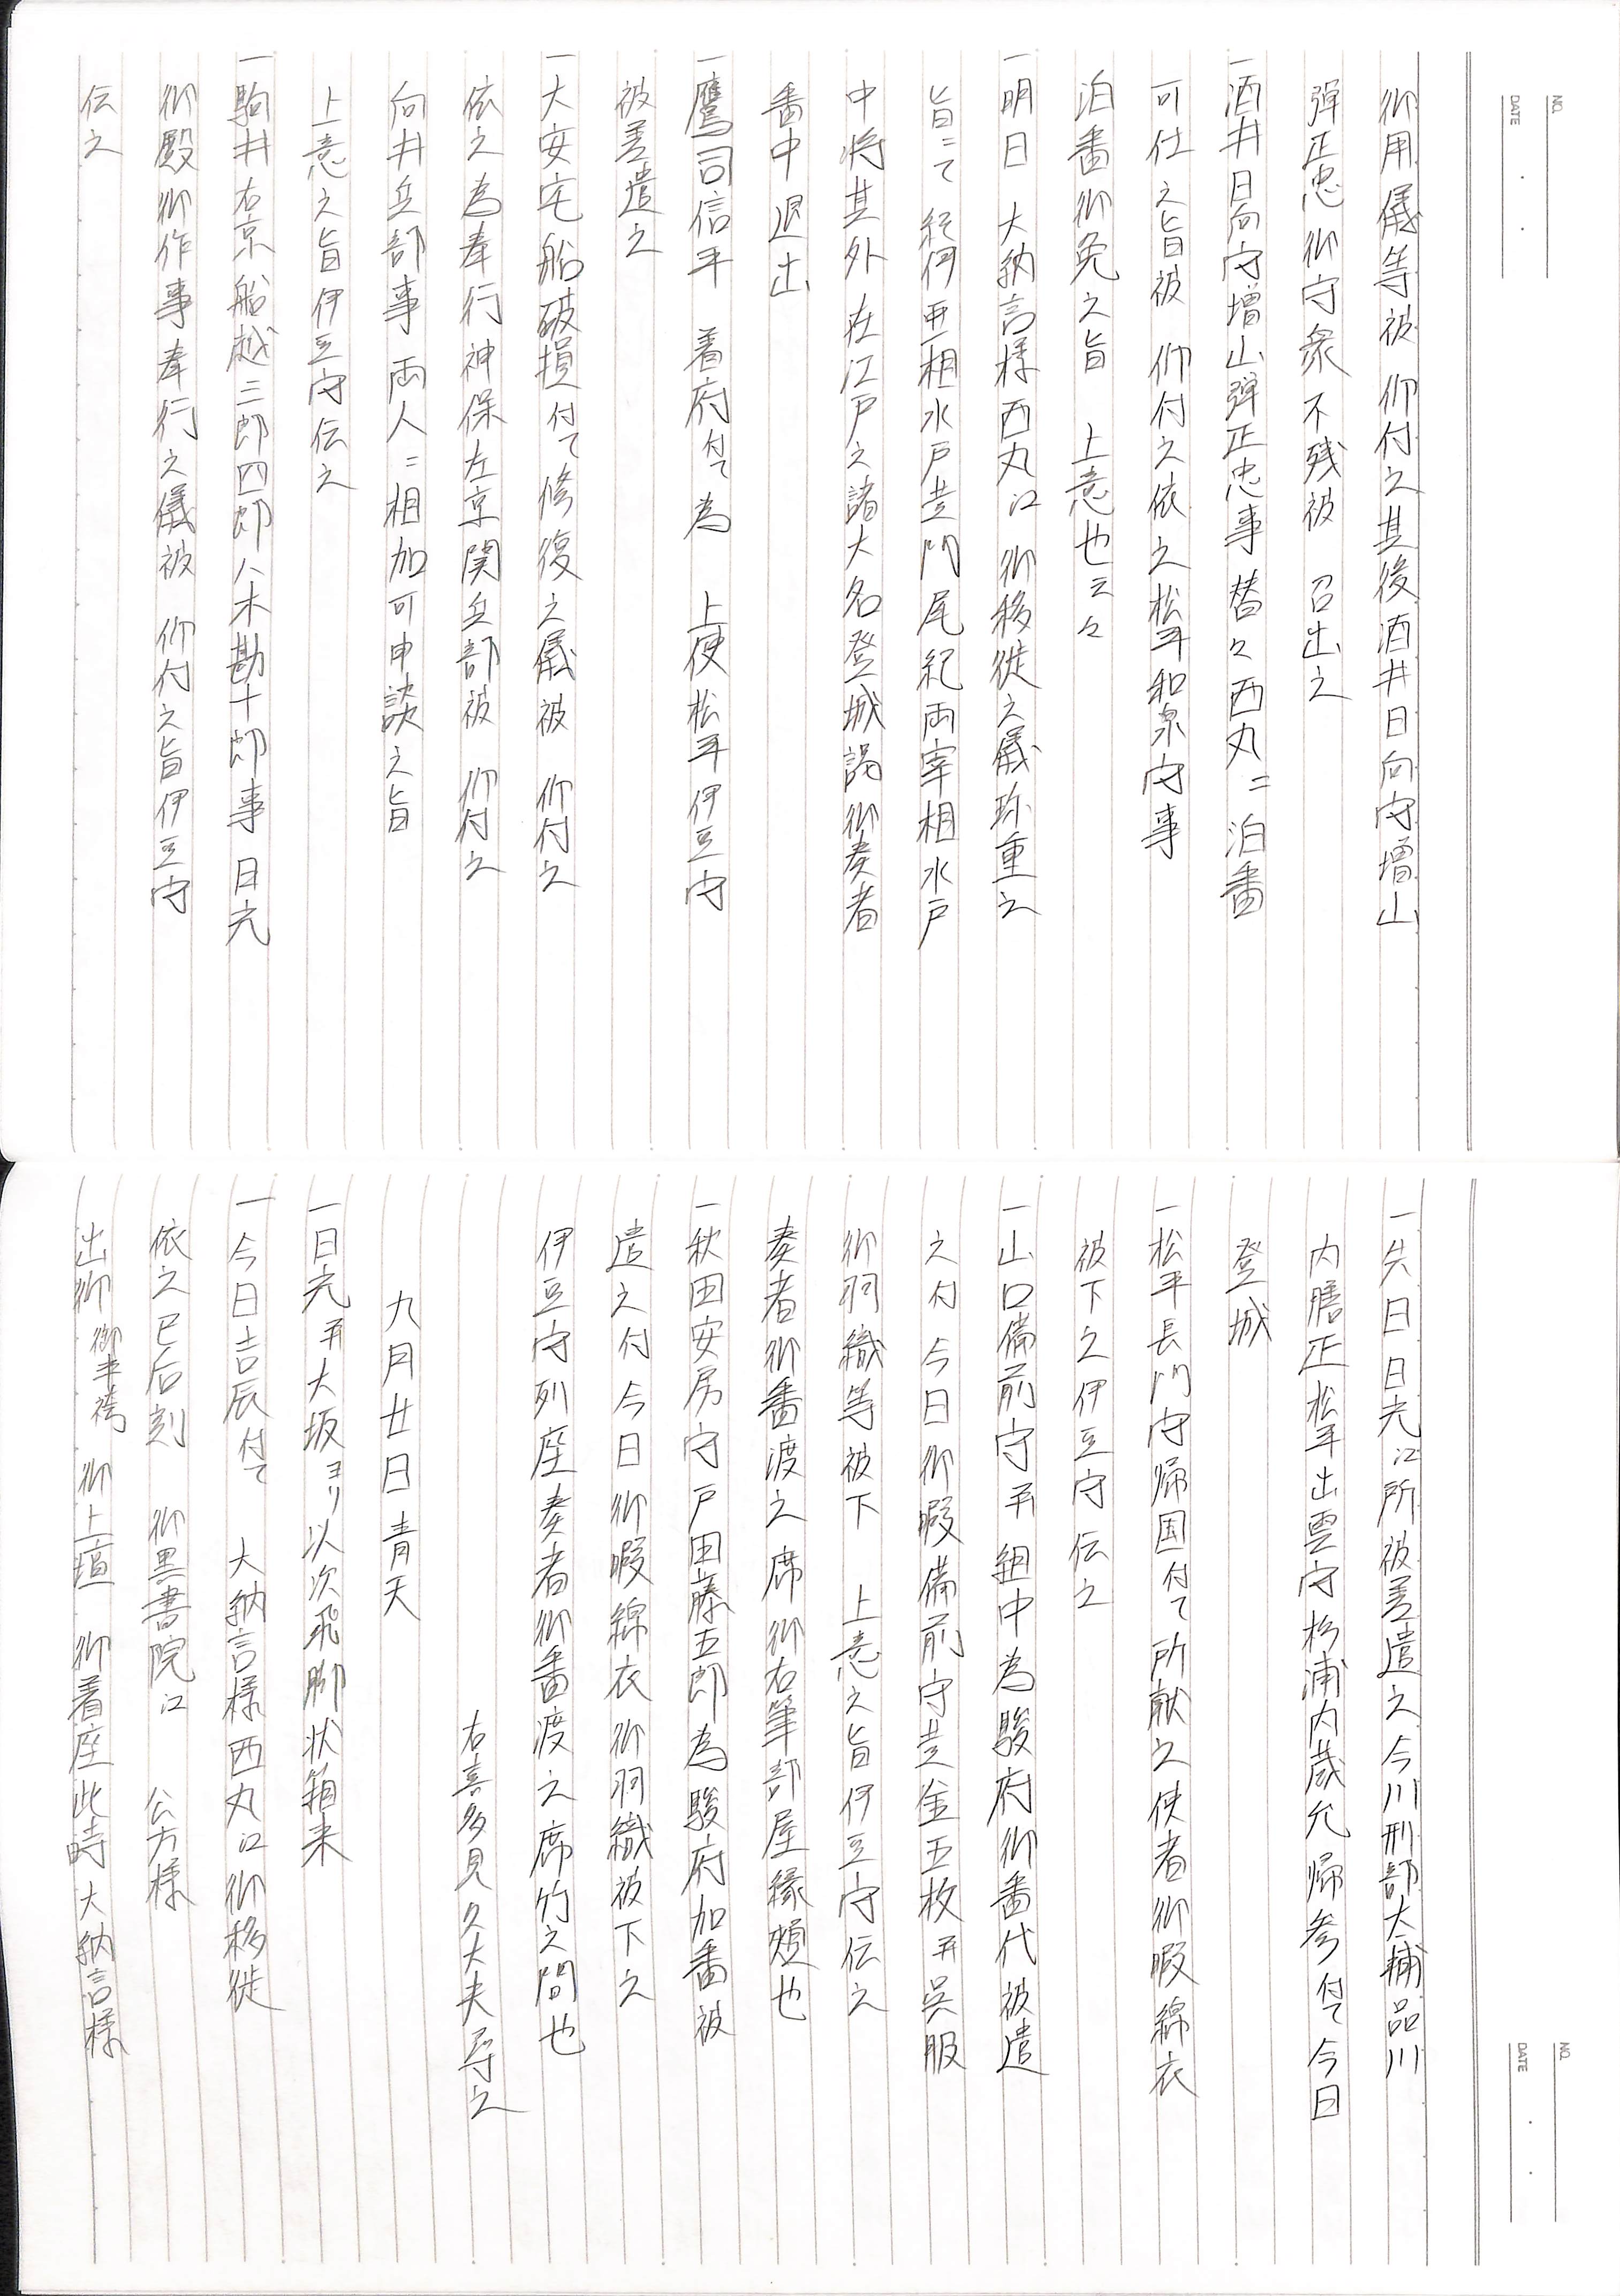 NO.
DATE
御用儀等被 仰付之其後酒井日向守増山
弾正忠御守衆不残被 召出之
一酒井日向守増山弾正忠事替々西丸ニ泊番
可仕之旨被 仰付之依之松平和泉守事
泊番御免之旨 上意也云々
一明日 大納言様西丸江 御移徙之儀珍重之
旨ニて 紀伊亜相水戸黄門尾紀両宰相水戸
中将其外在江戸之諸大名登城謁御奏者
番中退出
一鷹司信平 着府付て為 上使松平伊豆守
被差遣之
一大安宅船破損付て修復之儀被 仰付之
依之為奉行神保左京関兵部被 仰付之
向井兵部事両人ニ相加可申談之旨
上意之旨伊豆守伝之
一駒井右京船越三郎四郎八木勘十郎事日光
御殿御作事奉行之儀被 仰付之旨伊豆守
伝之
NO.
DATE
一先日日光江所被差遣之今川刑部大輔品川
内膳正松平出雲守杉浦内蔵允帰参付て今日
登城
一松平長門守帰国付て所献之使者御暇綿衣
被下之伊豆守伝之
一山口備前守并組中為駿府御番代被遣
之付今日御暇備前守黄金五枚并呉服
御羽織等被下 上意之旨伊豆守伝之
奏者御番渡之席御右筆部屋縁頬也
一秋田安房守戸田藤五郎為駿府加番被
遣之付今日御暇綿衣御羽織被下之
伊豆守列座奏者御番渡之席竹之間也
右喜多見久大夫尋之
九月廿日青天
一日光并大坂ヨリ以次飛脚状箱来
一今日吉辰付て 大納言様西丸江御移徙
依之巳后刻 御黒書院江 公方様
出御 御半袴 御上壇 御着座此時大納言様